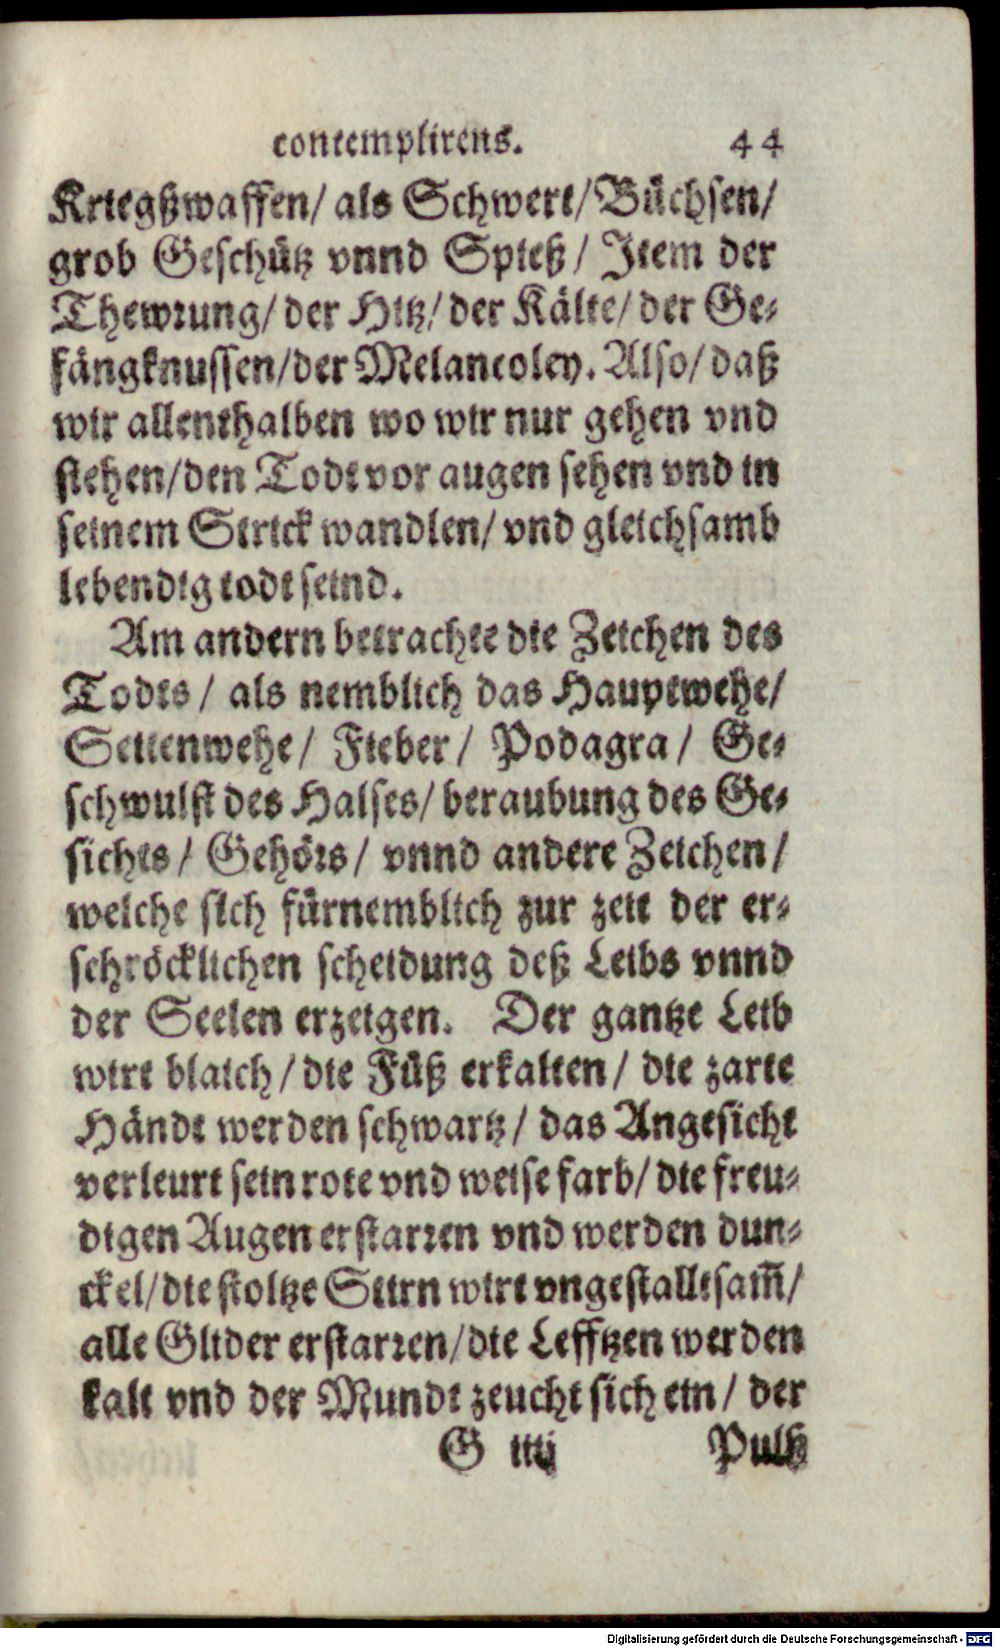 contemplirens. 44
Kriegßwaffen/ als Schwert/ Büchsen/
grob Geschütz vnnd Spieß/ Item der
Thewrung/ der Hitz/ der Kälte/ der Ge-
fängknussen/ der Melancoley. Also/ daß
wir allenthalben wo wir nur gehen vnd
stehen/ den Todt vor augen sehen vnd in
seinem Strick wandlen/ vnd gleichsamb
lebendig todt seind.
Am andern betrachte die Zeichen des
Todts/ als nemblich das Hauptwehe/
Seitenwehe/ Fieber/ Podagra/ Ge-
schwulst des Halses/ beraubung des Ge-
sichts/ Gehörs/ vnnd andere Zeichen/
welche sich fürnemblich zur zeit der er-
schröcklichen scheidung deß Leibs vnnd
der Seelen erzeigen. Der gantze Leib
wirt blaich/ die Füß erkalten/ die zarte
Händt werden schwartz/ das Angesicht
verleurt sein rote vnd weise farb/ die freu-
digen Augen erstarren vnd werden dun-
ckel/ die stoltze Stirn wirt vngestaltsam̃/
alle Glider erstarren/ die Lefftzen werden
kalt vnd der Mundt zeucht sich ein/ der
G iiij Pulß
Digitalisierung gefördert durch die Deutsche Forschungsgemeinschaft - DFG